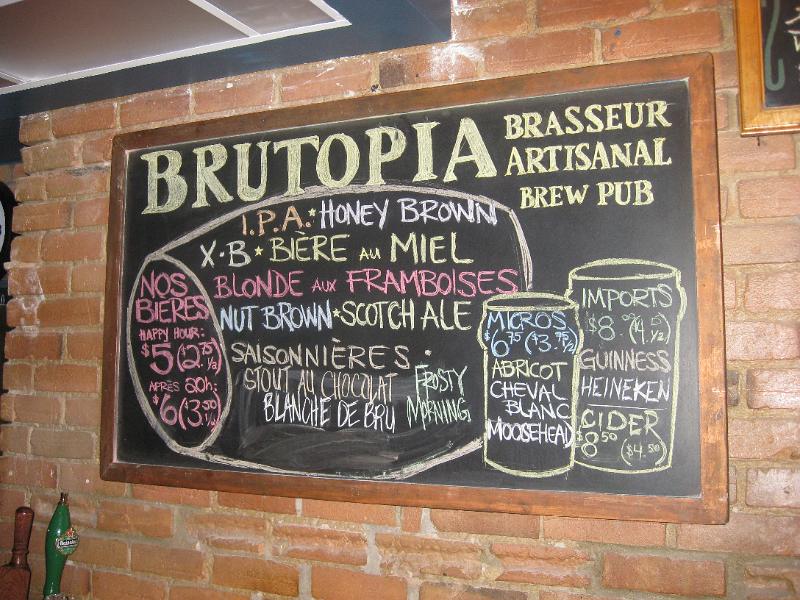 BRUTOPIA
BRASSEUR
ARTISANAL
BREW PUB
I.P.A. * HONEY BROWN
X·B * BIÈRE AU MIEL
BLONDE AUX FRAMBOISES
NUT BROWN * SCOTCH ALE
SAISONNIÈRES:
STOUT AU CHOCOLAT
BLANCHE DE BRU
FROSTY
MORNING
NOS
BIÈRES
HAPPY HOUR:
$5 (2.75 ½)
APRÈS 20h:
$6 (3.50 ½)
MICROS
$6.75 ($3.75 ½)
ABRICOT
CHEVAL
BLANC
MOOSEHEAD
IMPORTS
GUINNESS
HEINEKEN
CIDER
$8.50 ($4.50)
Heineken